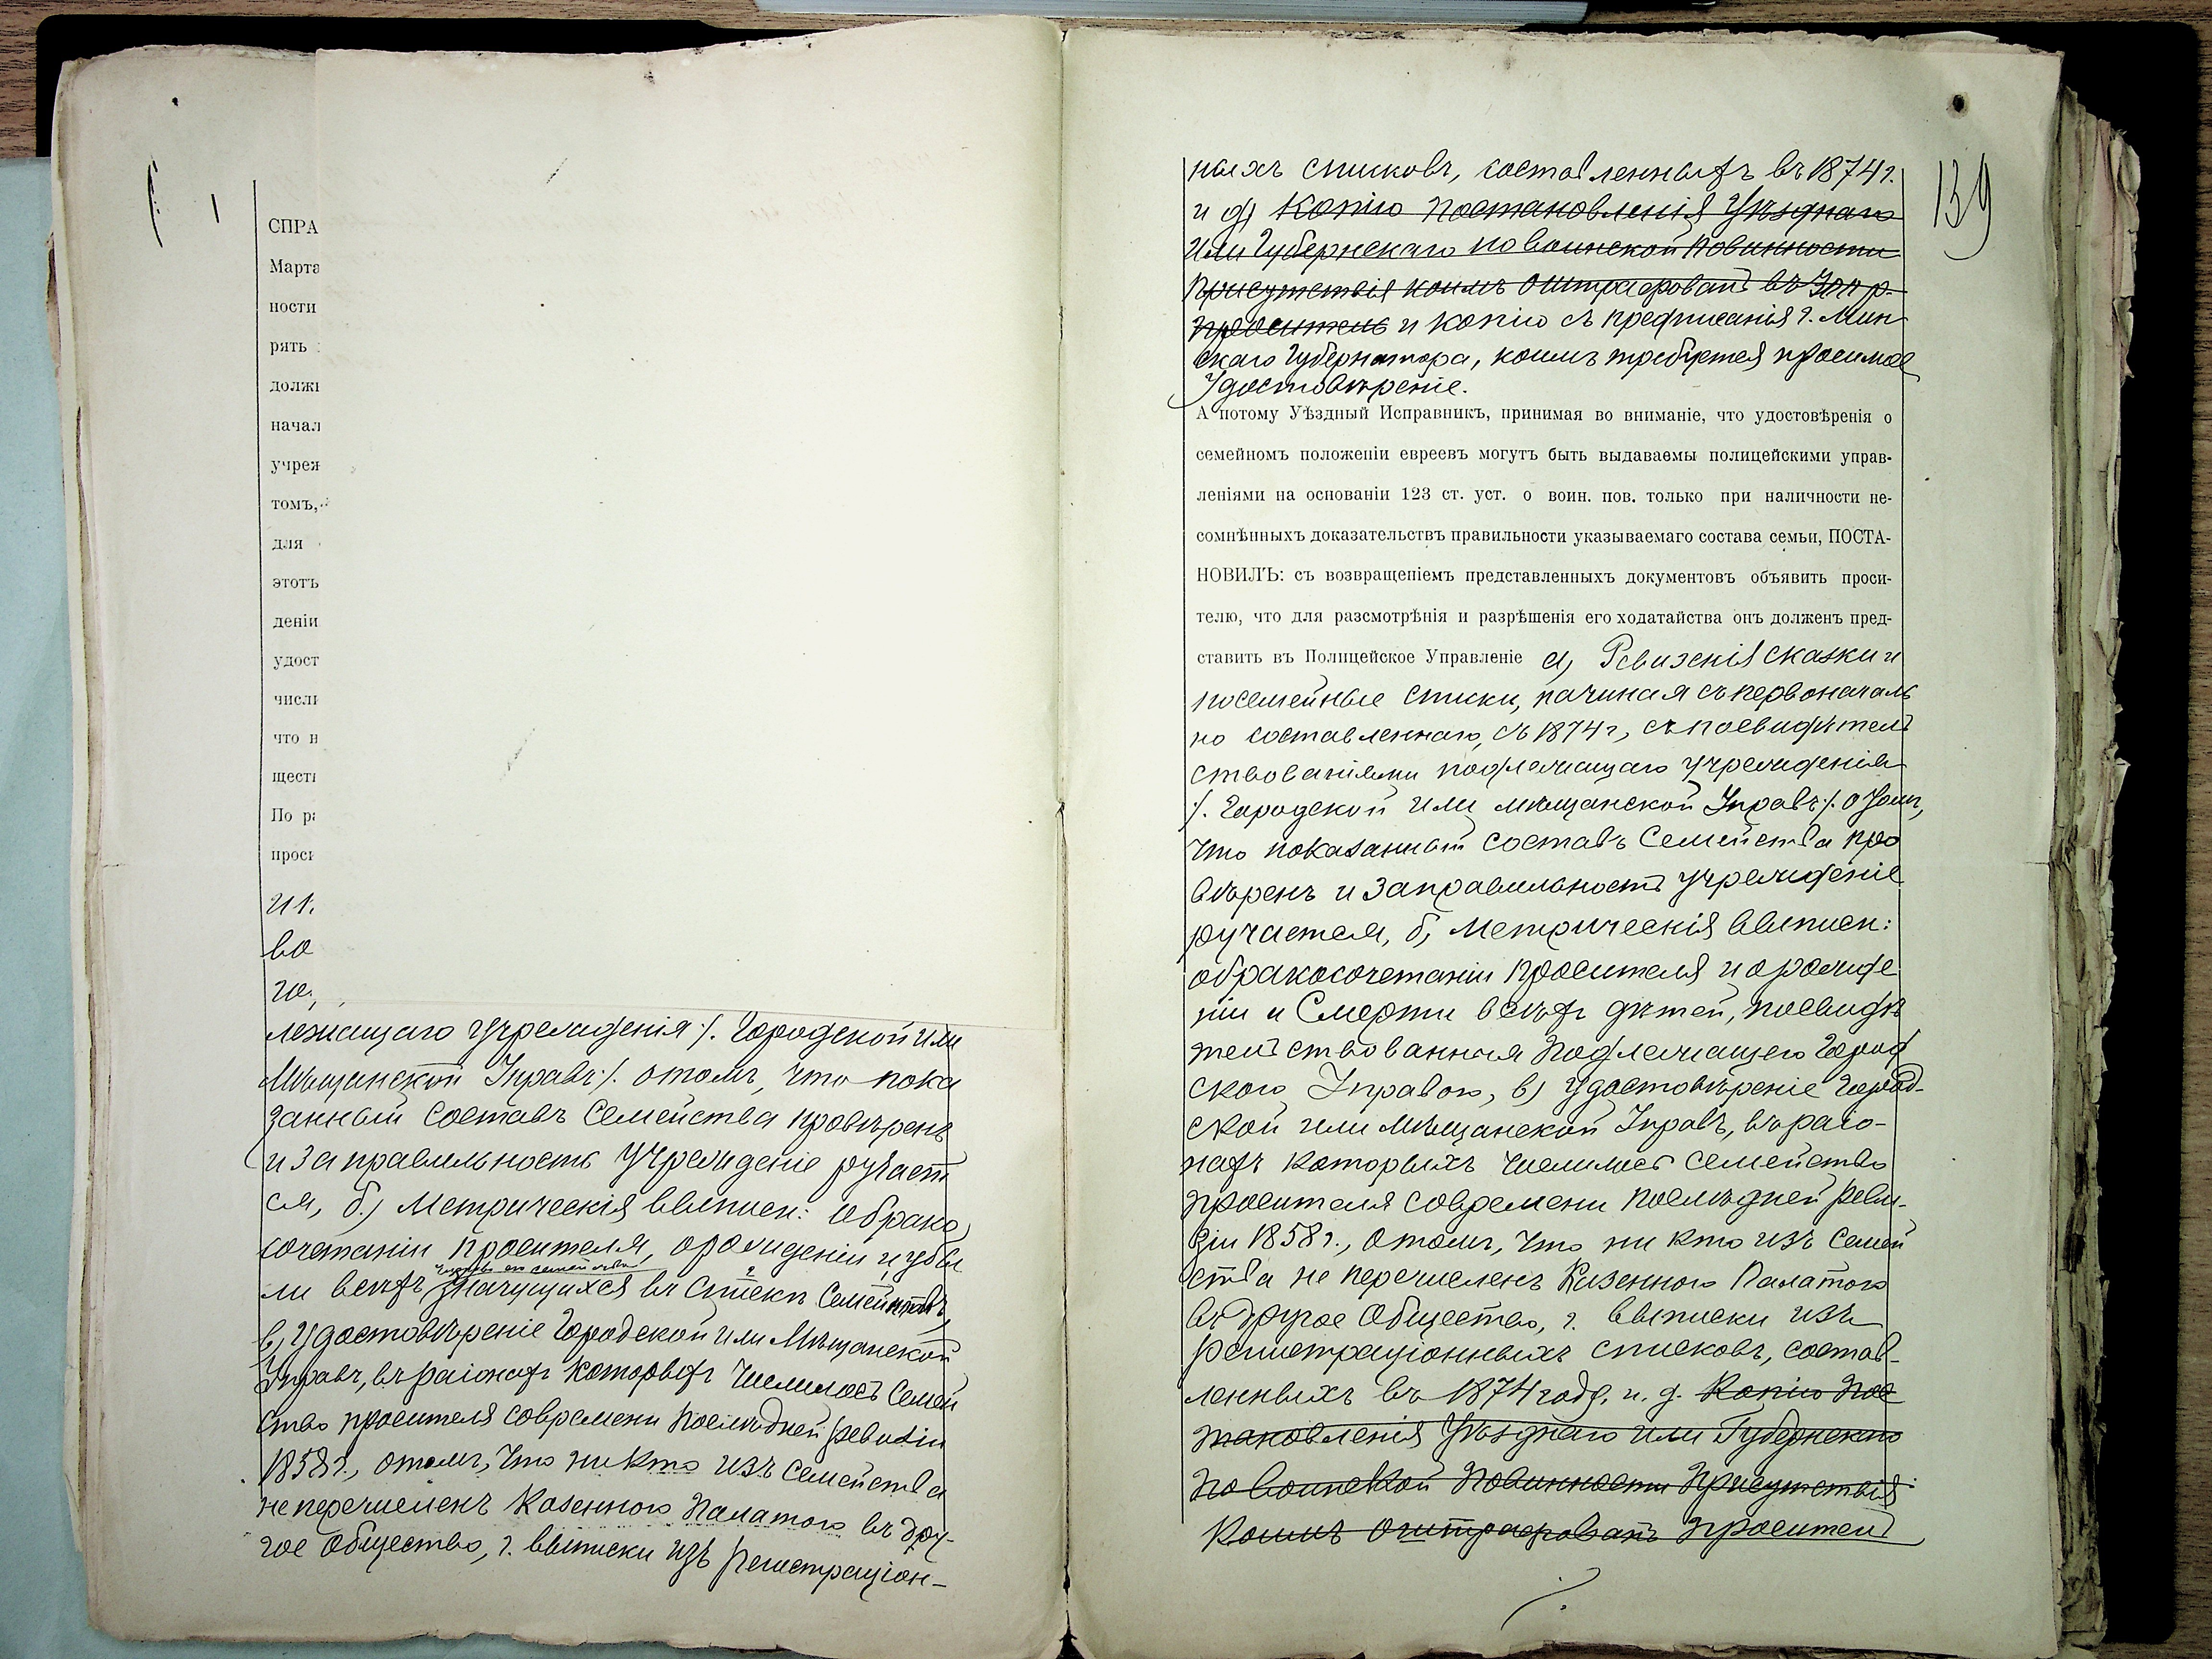 СПРА
Марта
ности
рять
должн
начал
учреж
томъ,
для
этотъ
деніи
удост
числи
что н
щест
По ра
проси
и к.
во
го,
лежащаго учрежденія /. Городской или
Мѣщанской Управъ /. отомъ, что пока
занный составъ семейства провѣренъ
и за правильность учрежденіе ручает
ся, б.) Метрическія выписи: о брако
сочетаніи просителя, орожденіи и убы
ли всѣхъ значущихся въ спискѣ
в, Удостовѣреніе Городской или Мѣщанской
Управъ, въ раіонахъ которыхъ числилось семей
ство просителя современи послѣдней ревизіи
1858 г., отомъ, что никто изъ семейства
не перечисленъ Казенною Палатою въ дру-
гое Общество, г. выписки изъ регистраціон-
139
ныхъ списковъ, составленныхъ въ 1874 г.
и д) Копію постановленія Уѣзднаго
или Губернскаго по воинской повинности
Присутствія коимъ оштрафованъ въ 300 р.
проситель и копію съ предписанія г. Мин
скаго Губернатора, коимъ требуется просимое
Удостовѣреніе.
А потому Уѣздный Исправникъ, принимая во вниманіе, что удостовѣренія о
семейномъ положеніи евреевъ могутъ быть выдаваемы полицейскими управ-
леніями на основаніи 123 ст. уст. о воин. пов. только при наличности не-
сомнѣнныхъ доказательствъ правильности указываемаго состава семьи, ПОСТА-
НОВИЛЪ: съ возвращеніемъ представленныхъ документовъ объявить проси-
телю, что для разсмотрѣнія и разрѣшенія его ходатайства онъ долженъ пред-
ставить въ Полицейское Управленіе а, Ревизскія сказки и
посемейные списки, начиная съ первоначаль
но составленнаго, съ 1874 г, съ посвидѣтель
ствованіями подлежащаго учрежденія
/. Городской или мѣщанской Управъ /. о томъ,
что показанный составъ Семейства про
вѣренъ и за правильность учрежденіе
ручается, б, Метрическія выписи:
обракосочетаніи просителя и орожде
ніи и Смерти всѣхъ дѣтей, посвидѣ
тельствованныя подлежащею Город
скою Управою, в) Удостовѣреніе Город-
ской или Мѣщанской Управъ, въ раіо-
нахъ которыхъ числилось семейство
просителя современи послѣдней реви-
зіи 1858 г., отомъ, что ни кто изъ семей
ства не перечисленъ Казенною Палатою
въ другое Общество, г. выписки изъ
регистраціонныхъ списковъ, состав-
ленныхъ въ 1874 году. и. д. Копію пос
тановленія Уѣзднаго или Губернскаго
по воинской повинности Присутствія
Коимъ оштрафованъ проситель